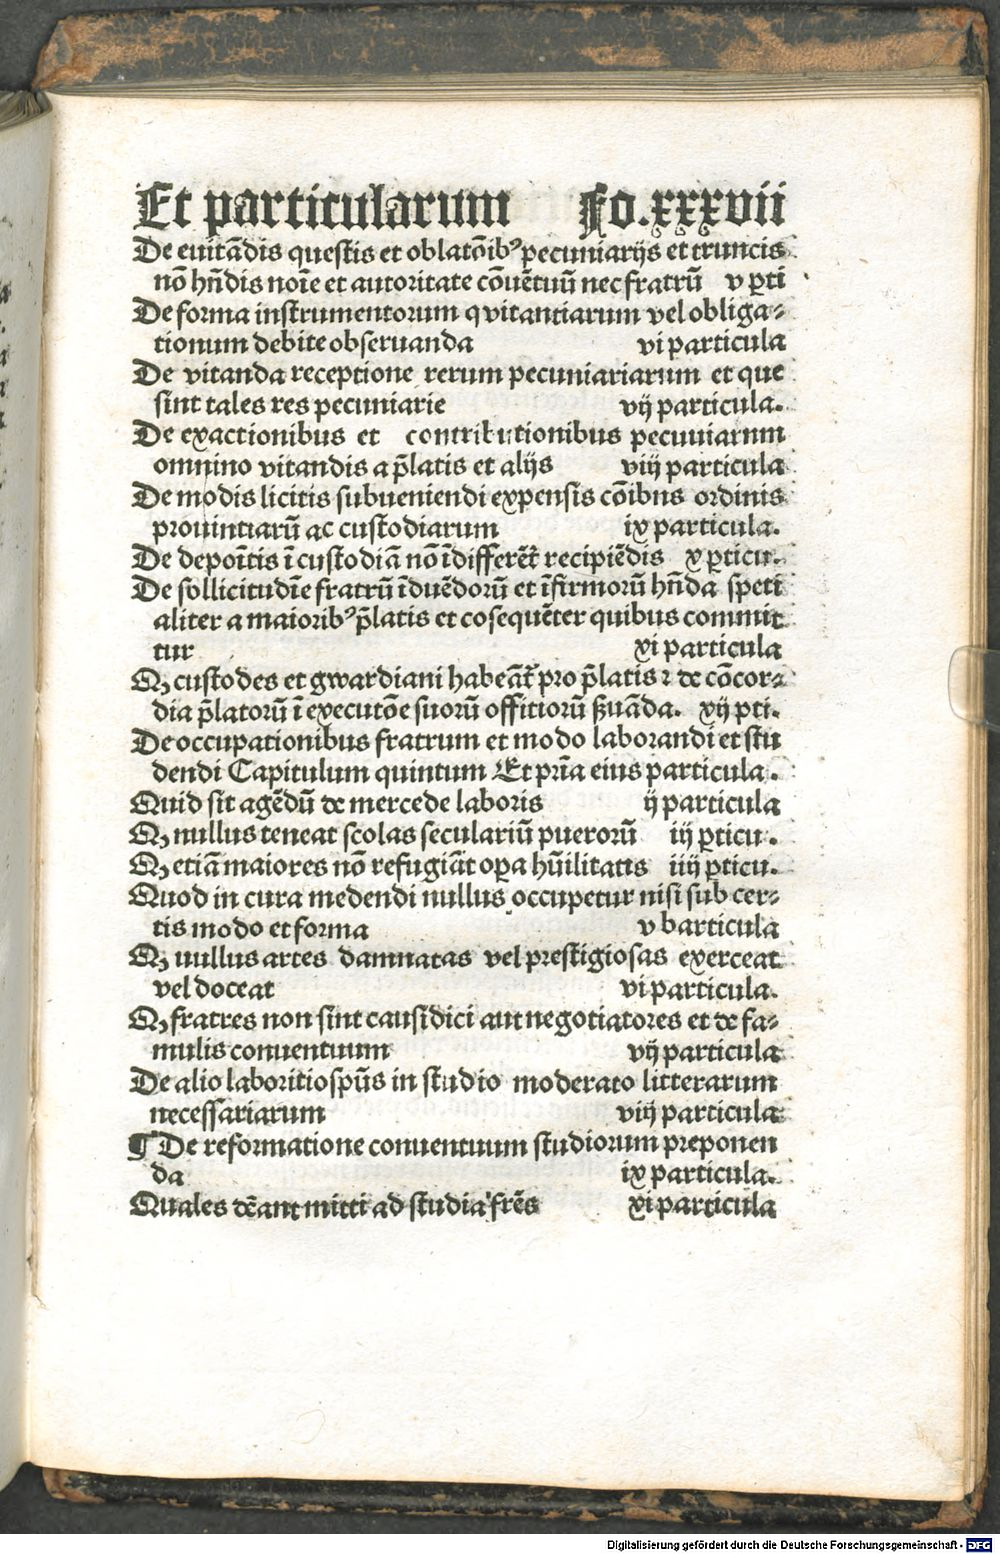 Et particularum Fo.xxxvii
De euitādis questis et oblatōibꝰ pecuniarijs et truncis
nō hñdis noīe et autoritate cōuētuū nec fratrū v ꝑti
De forma instrumentorum qvitantiarum vel obliga⸗
tionum debite obseruanda vi particula
De vitanda receptione rerum pecuniariarum et que
sint tales res pecuniarie vij particula.
De exactionibus et contributionibus pecuuiarnm
omnino vitandis a p̄latis et alijs viij particula
De modis licitis subueniendi expensis cōibns ordinis
prouintiarū ac custodiarum ix particula.
De depoītis ī custodiā nō īdifferēt᷑ recipiēdis x ꝑticu.
De sollicitudīe fratrū īduēdorū et īfirmorū hñda speti
aliter a maioribꝰ p̄latis et cosequēter quibus commit
tur xi particula
Qꝫ custodes et gwardiani habeāt᷑ pro p̄latis ⁊ de cōcor⸗
dia p̄latorū ī executōe suorū offitiorū ẜuāda. xij pti.
De occupationibus fratrum et modo laborandi et stu
dendi Capitulum quintum Et prīa eius particula.
Quid sit agēdū de mercede laboris ij particula
Qꝫ nullus teneat scolas seculariū puerorū iij ꝑticu.
Qꝫ etiā maiores nō refugiāt oꝑa hūilitatis iiij ꝑticu.
Quod in cura medendi nullus occupetur nisi sub cer⸗
tis modo et forma v barticula
Qꝫ uullus artes damnatas vel prestigiosas exerceat
vel doceat vi particula.
Qꝫ fratres non sint causidici aut negotiatores et de fa⸗
mulis conuentuum vij particula
De alio laboritio sp̄us in studio moderato litterarum
necessariarum viij particula
¶ De reformatione conuentuum studiorum preponen
da ix particula.
Quales dēant mitti ad studia frēs xi particula
Digitalisierung gefördert durch die Deutsche Forschungsgemeinschaft - DFG